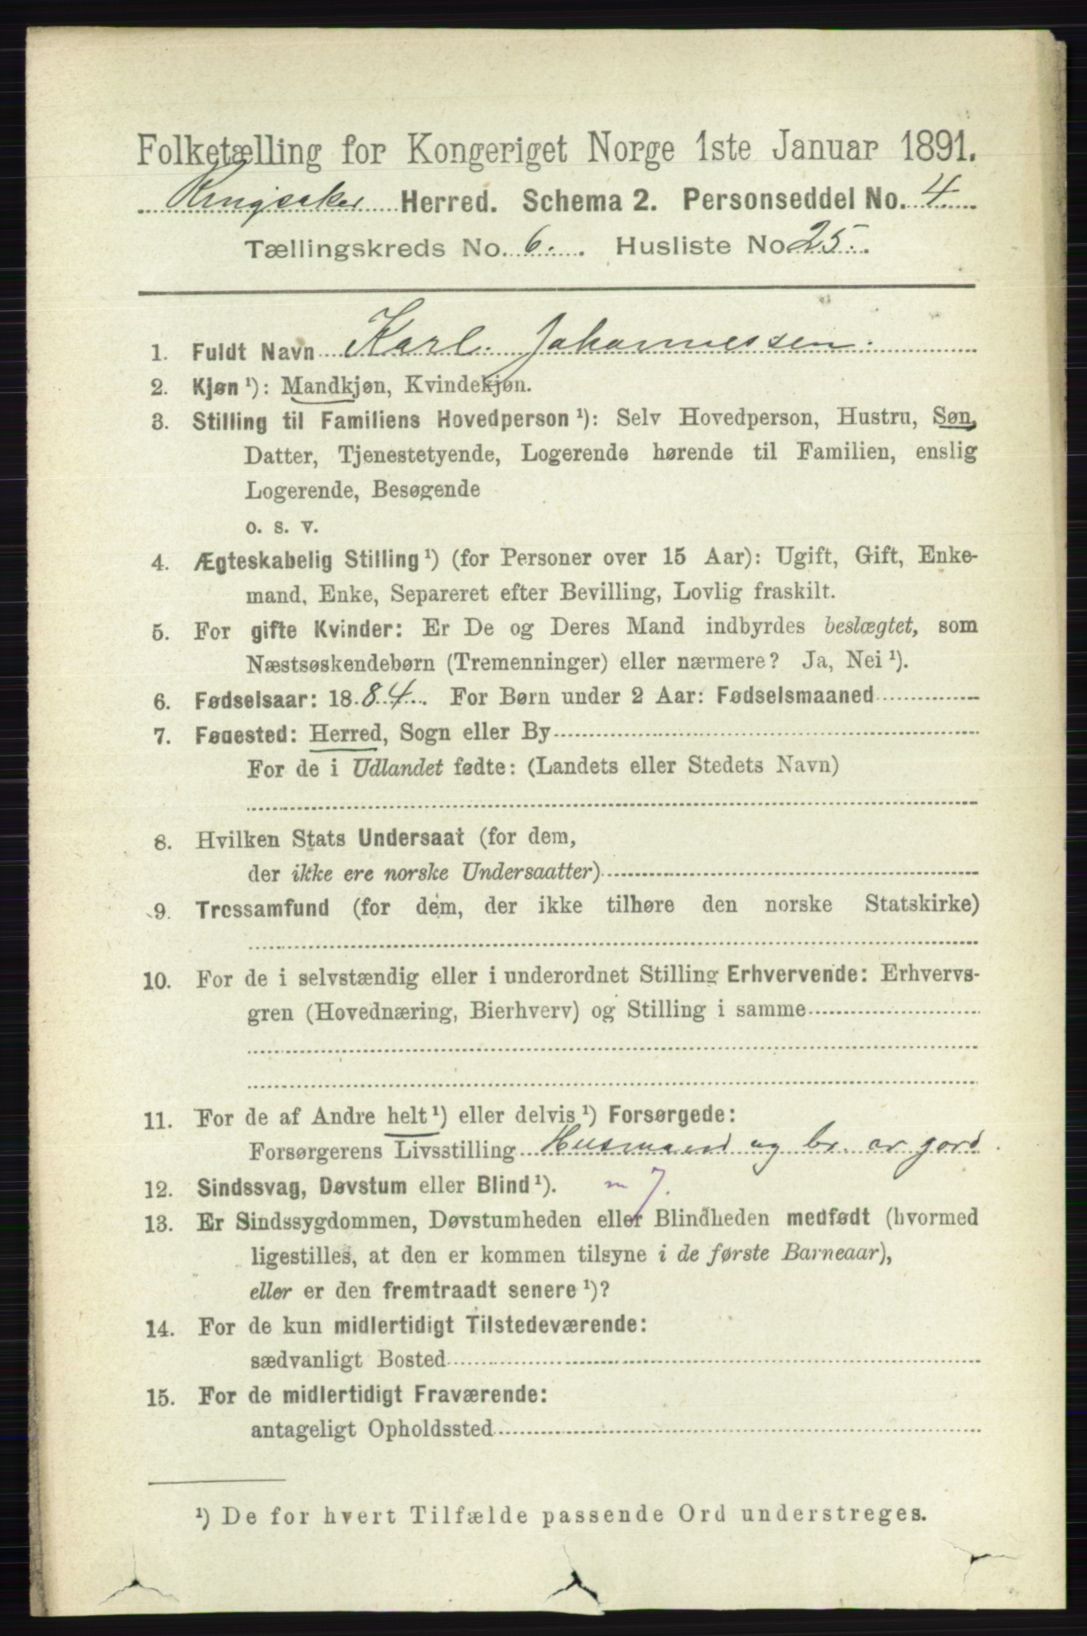 Folketælling for Kongeriget Norge 1ste Januar 1891.
Ringsaker Herred. Schema 2. Personseddel No. 4.
Tællingskreds No. 6. Husliste No. 25.
1. Fuldt Navn Karl Johannessen.
2. Kjøn ¹): Mandkjøn, Kvindekjøn.
3. Stilling til Familiens Hovedperson ¹): Selv Hovedperson, Hustru, Søn,
Datter, Tjenestetyende, Logerende hørende til Familien, enslig
Logerende, Besøgende
o. s. v.
4. Ægteskabelig Stilling ¹) (for Personer over 15 Aar): Ugift, Gift, Enke-
mand, Enke, Separeret efter Bevilling, Lovlig fraskilt.
5. For gifte Kvinder: Er De og Deres Mand indbyrdes beslægtet, som
Næstsøskendebørn (Tremenninger) eller nærmere? Ja, Nei ¹).
6. Fødselsaar: 1884. For Børn under 2 Aar: Fødselsmaaned
7. Føuested: Herred, Sogn eller By
For de i Udlandet fødte: (Landets eller Stedets Navn)
8. Hvilken Stats Undersaat (for dem,
der ikke ere norske Undersaatter)
9. Trossamfund (for dem, der ikke tilhøre den norske Statskirke)
10. For de i selvstændig eller i underordnet Stilling Erhvervende: Erhvervs-
gren (Hovednæring, Bierhverv) og Stilling i samme
11. For de af Andre helt ¹) eller delvis ¹) Forsørgede:
Forsørgerens Livsstilling Husmand og br. av jord.
12. Sindssvag, Døvstum eller Blind ¹). m 7.
13. Er Sindssygdommen, Døvstumheden eller Blindheden medfødt (hvormed
ligestilles, at den er kommen tilsyne i de første Barneaar),
eller er den fremtraadt senere ¹)?
14. For de kun midlertidigt Tilstedeværende:
sædvanligt Bosted
15. For de midlertidigt Fraværende:
antageligt Opholdssted
¹) De for hvert Tilfælde passende Ord understreges.